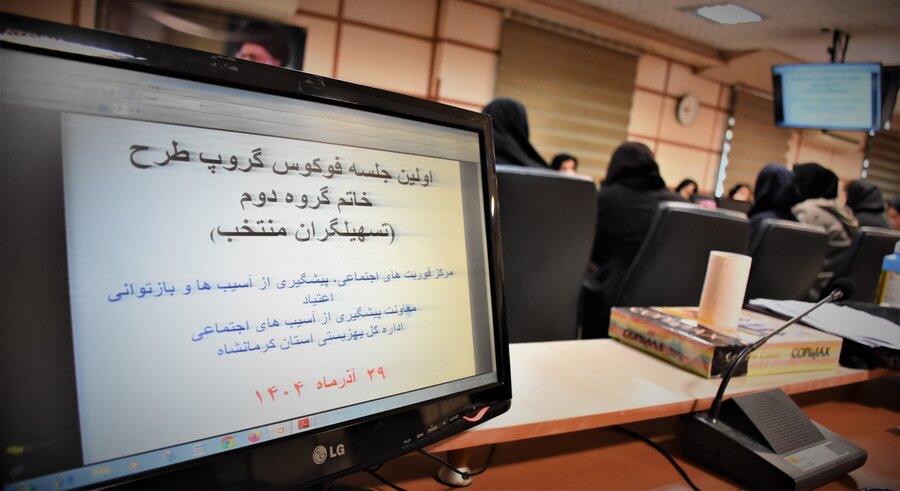 اولین جلسه فوکوس گروپ طرح
خاتم گروه دوم
(تسهیلگران منتخب)
مرکز فوریت های اجتماعی، پیشگیری از آسیب ها و بازتوانی
اعتیاد
معاونت پیشگیری از آسیب های اجتماعی
اداره کل بهزیستی استان کرمانشاه
۲۹ آذرماه ۱۴۰۴
LG
COPIMAX